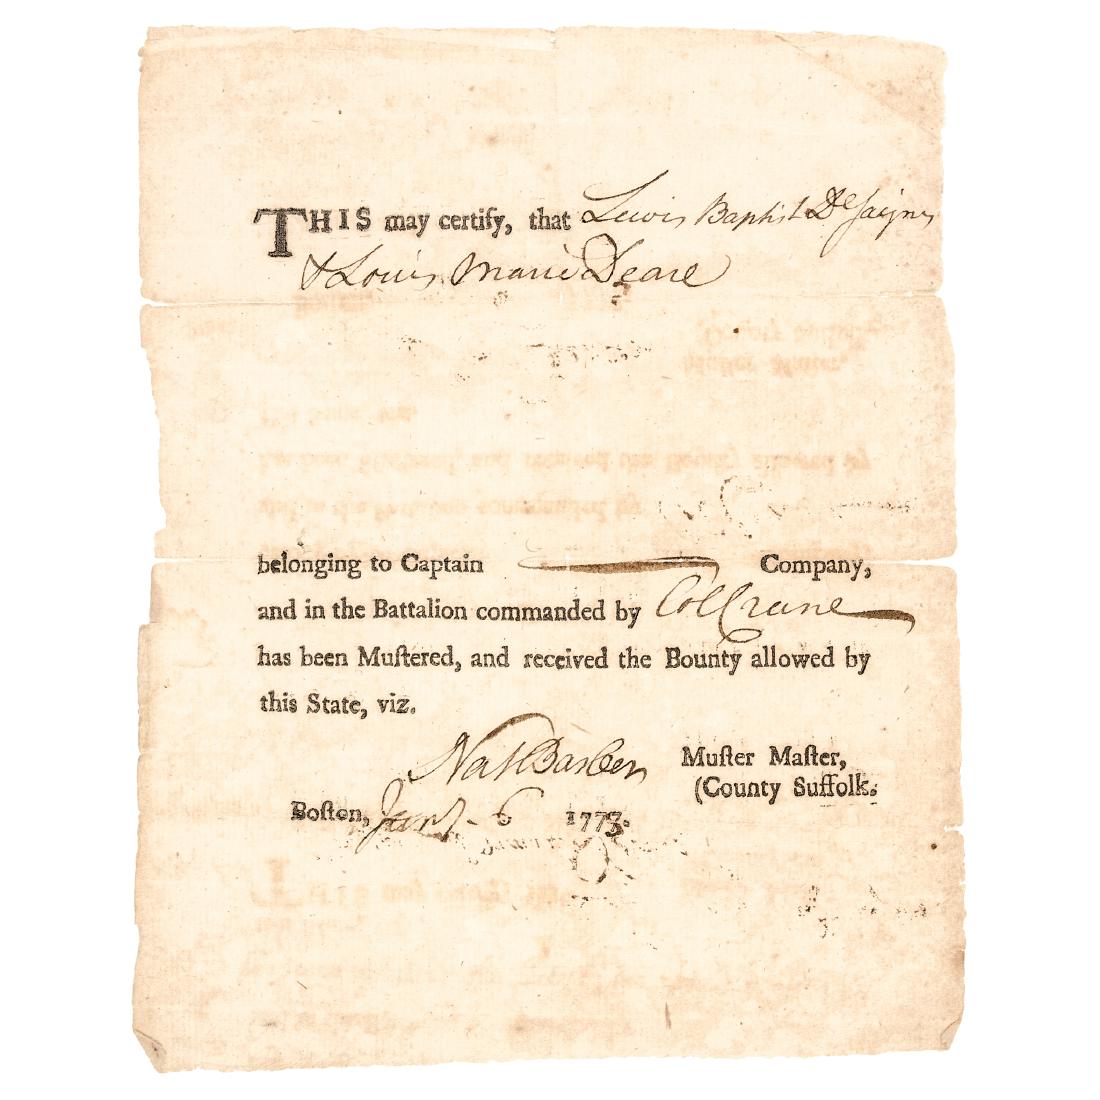 THIS may certify, that Lewis Baptist DeJaignes
& Louis Marie Deare
belonging to Captain Company,
and in the Battalion commanded by Col Crane
has been Muſtered, and received the Bounty allowed by
this State, viz.
Nat Barber Muſter Maſter,
(County Suffolk.
Boſton, Jany 6 1778.